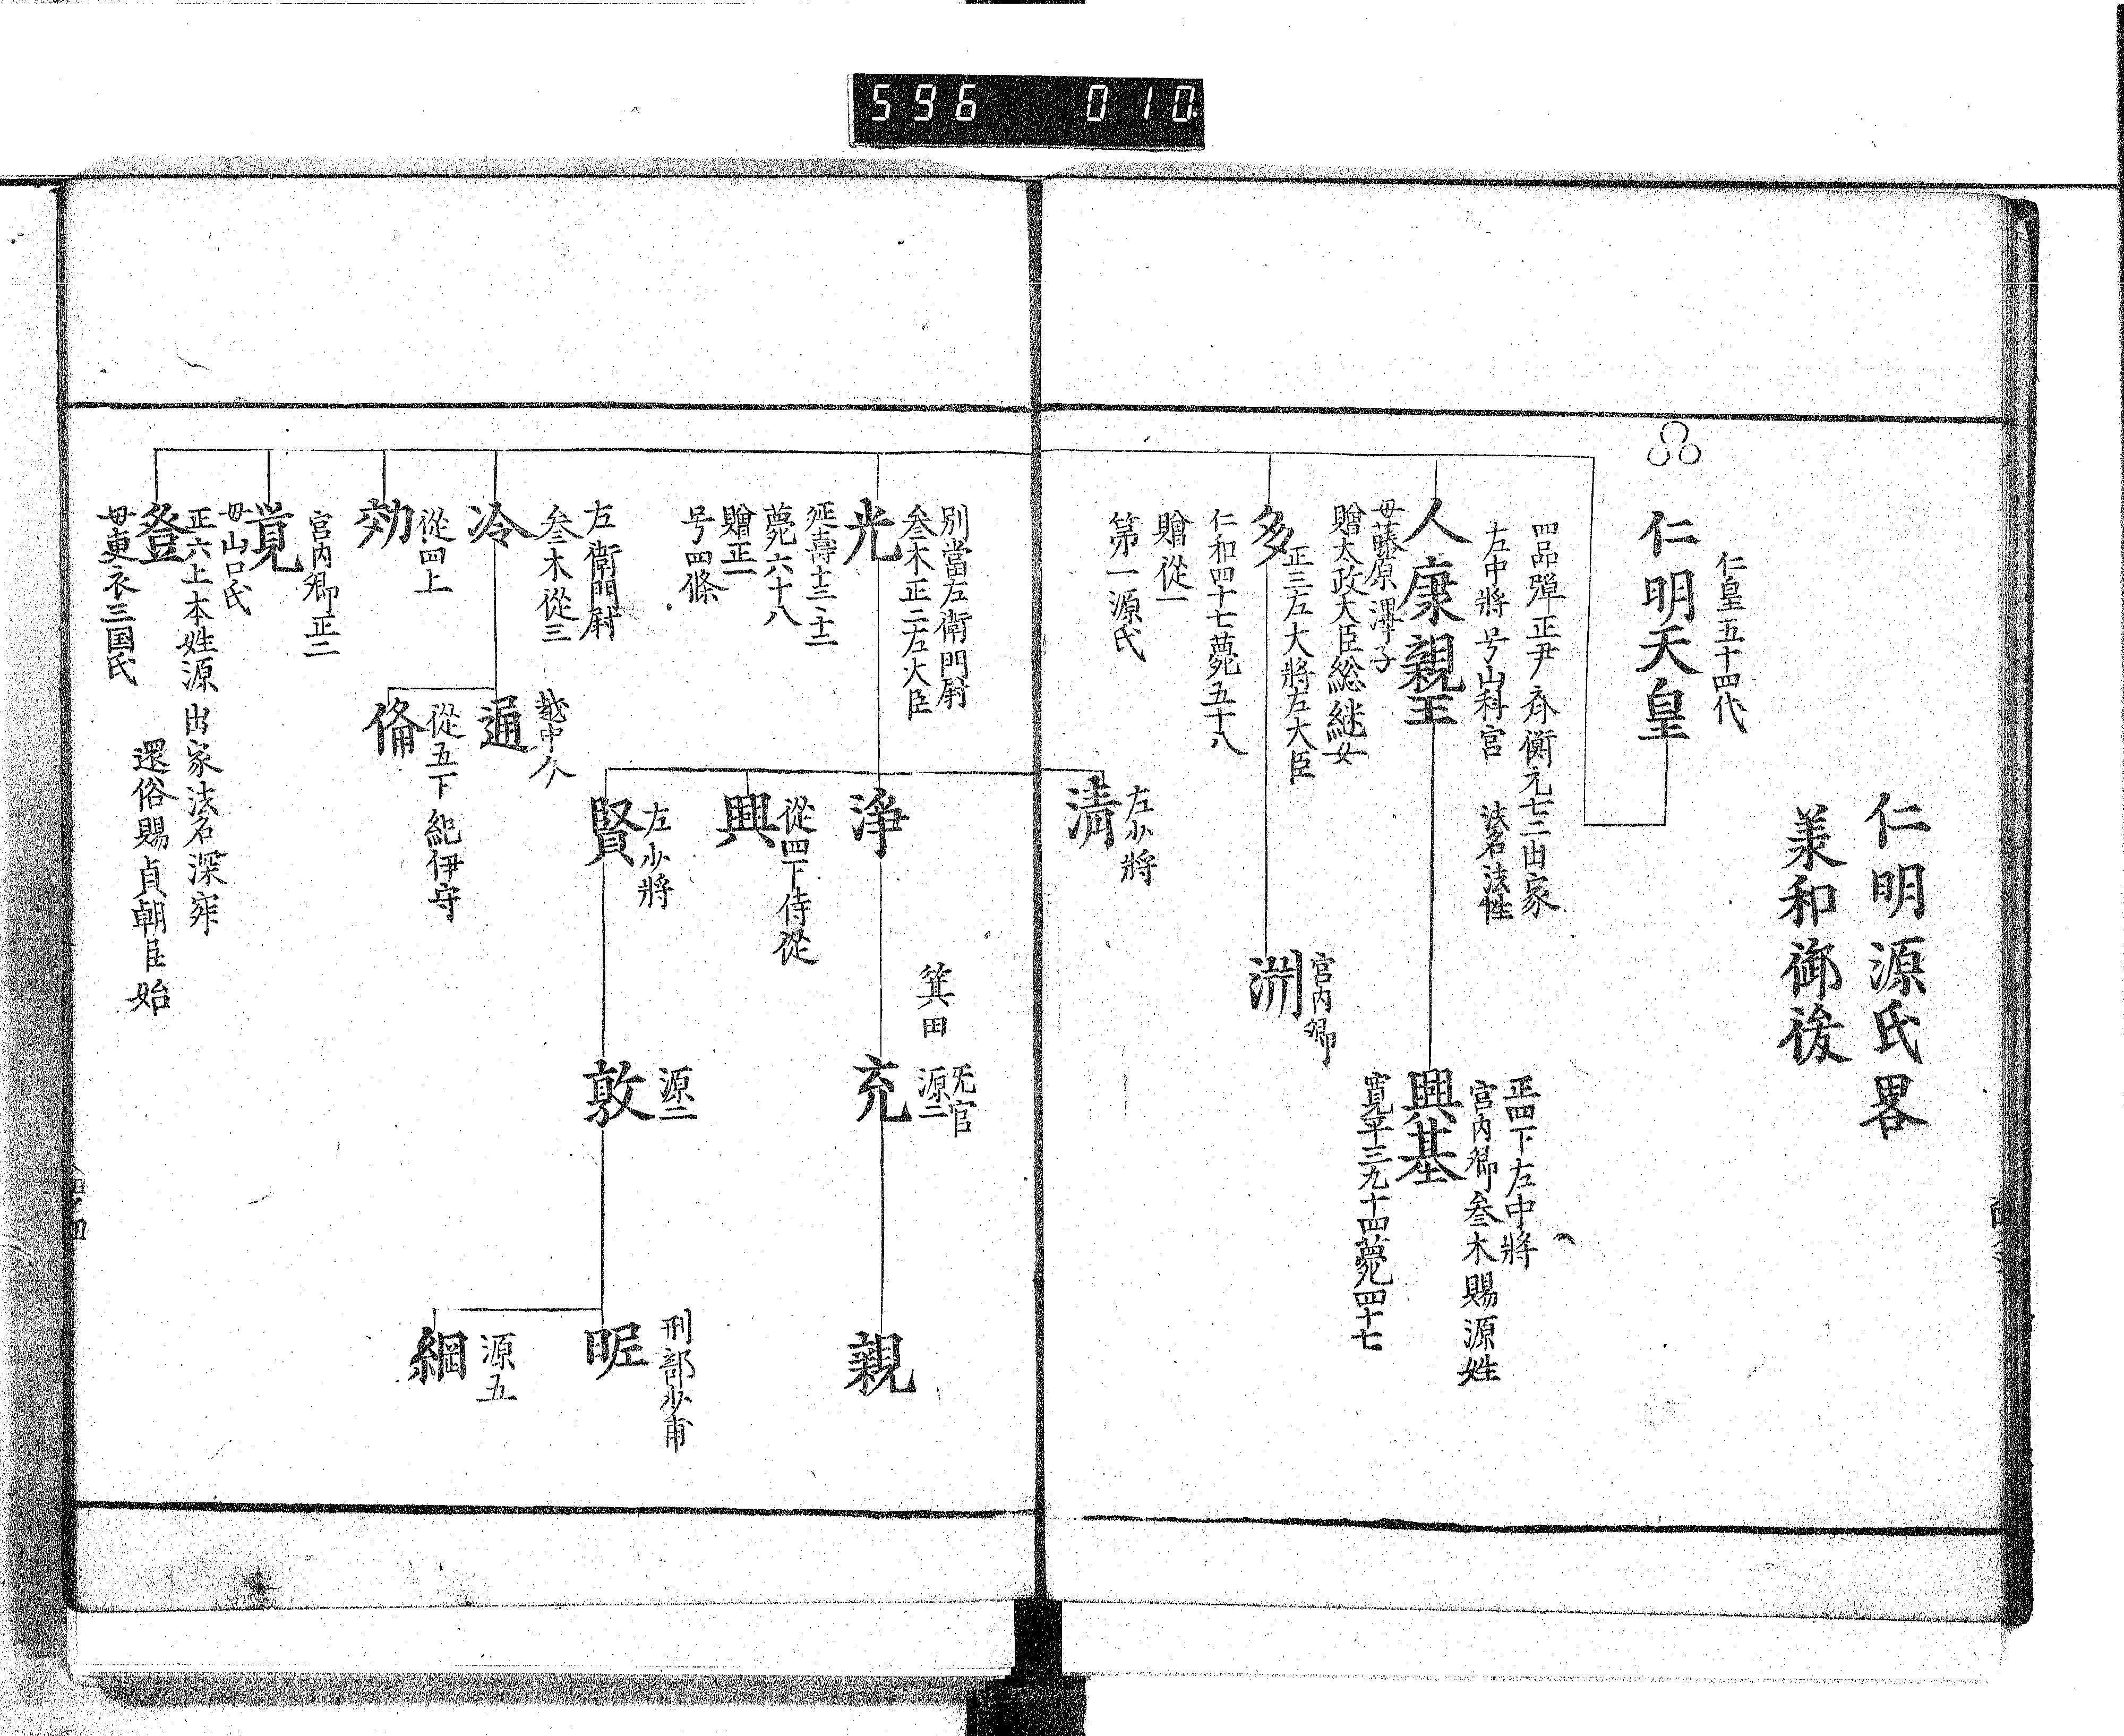 596 010
仁明源氏畧
羕和御後
仁皇五十四代
仁明天皇
四品彈正尹斉衡元七二出家
左中將号山科宮 法名法性
人康親王
母藤原澤子
贈太政大臣総継女
正四下左中將
宮内卿叅木賜源姓
興基
寛平三九十四薨四十七
多
正三左大將左大臣
仁和四十七薨五十八
贈從一
第一源氏
宮内卿
渕
左少將
清
別當左衛門尉
叅木正二左大臣
光
延壽十三二十二
薨六十八
贈正一
号四條
淨
箕田
无官
源二
充
親
從四下侍從
興
左少將
賢
源二
敦
刑部少甫
昵
源五
綱
左衛門尉
叅木從三
冷
越中介
通
從五下紀伊守
脩
從四上
効
宮内卿正二
覚
母山口氏
正六上本姓源出家法名深寂
登
還俗賜貞朝臣始
母更衣三国氏